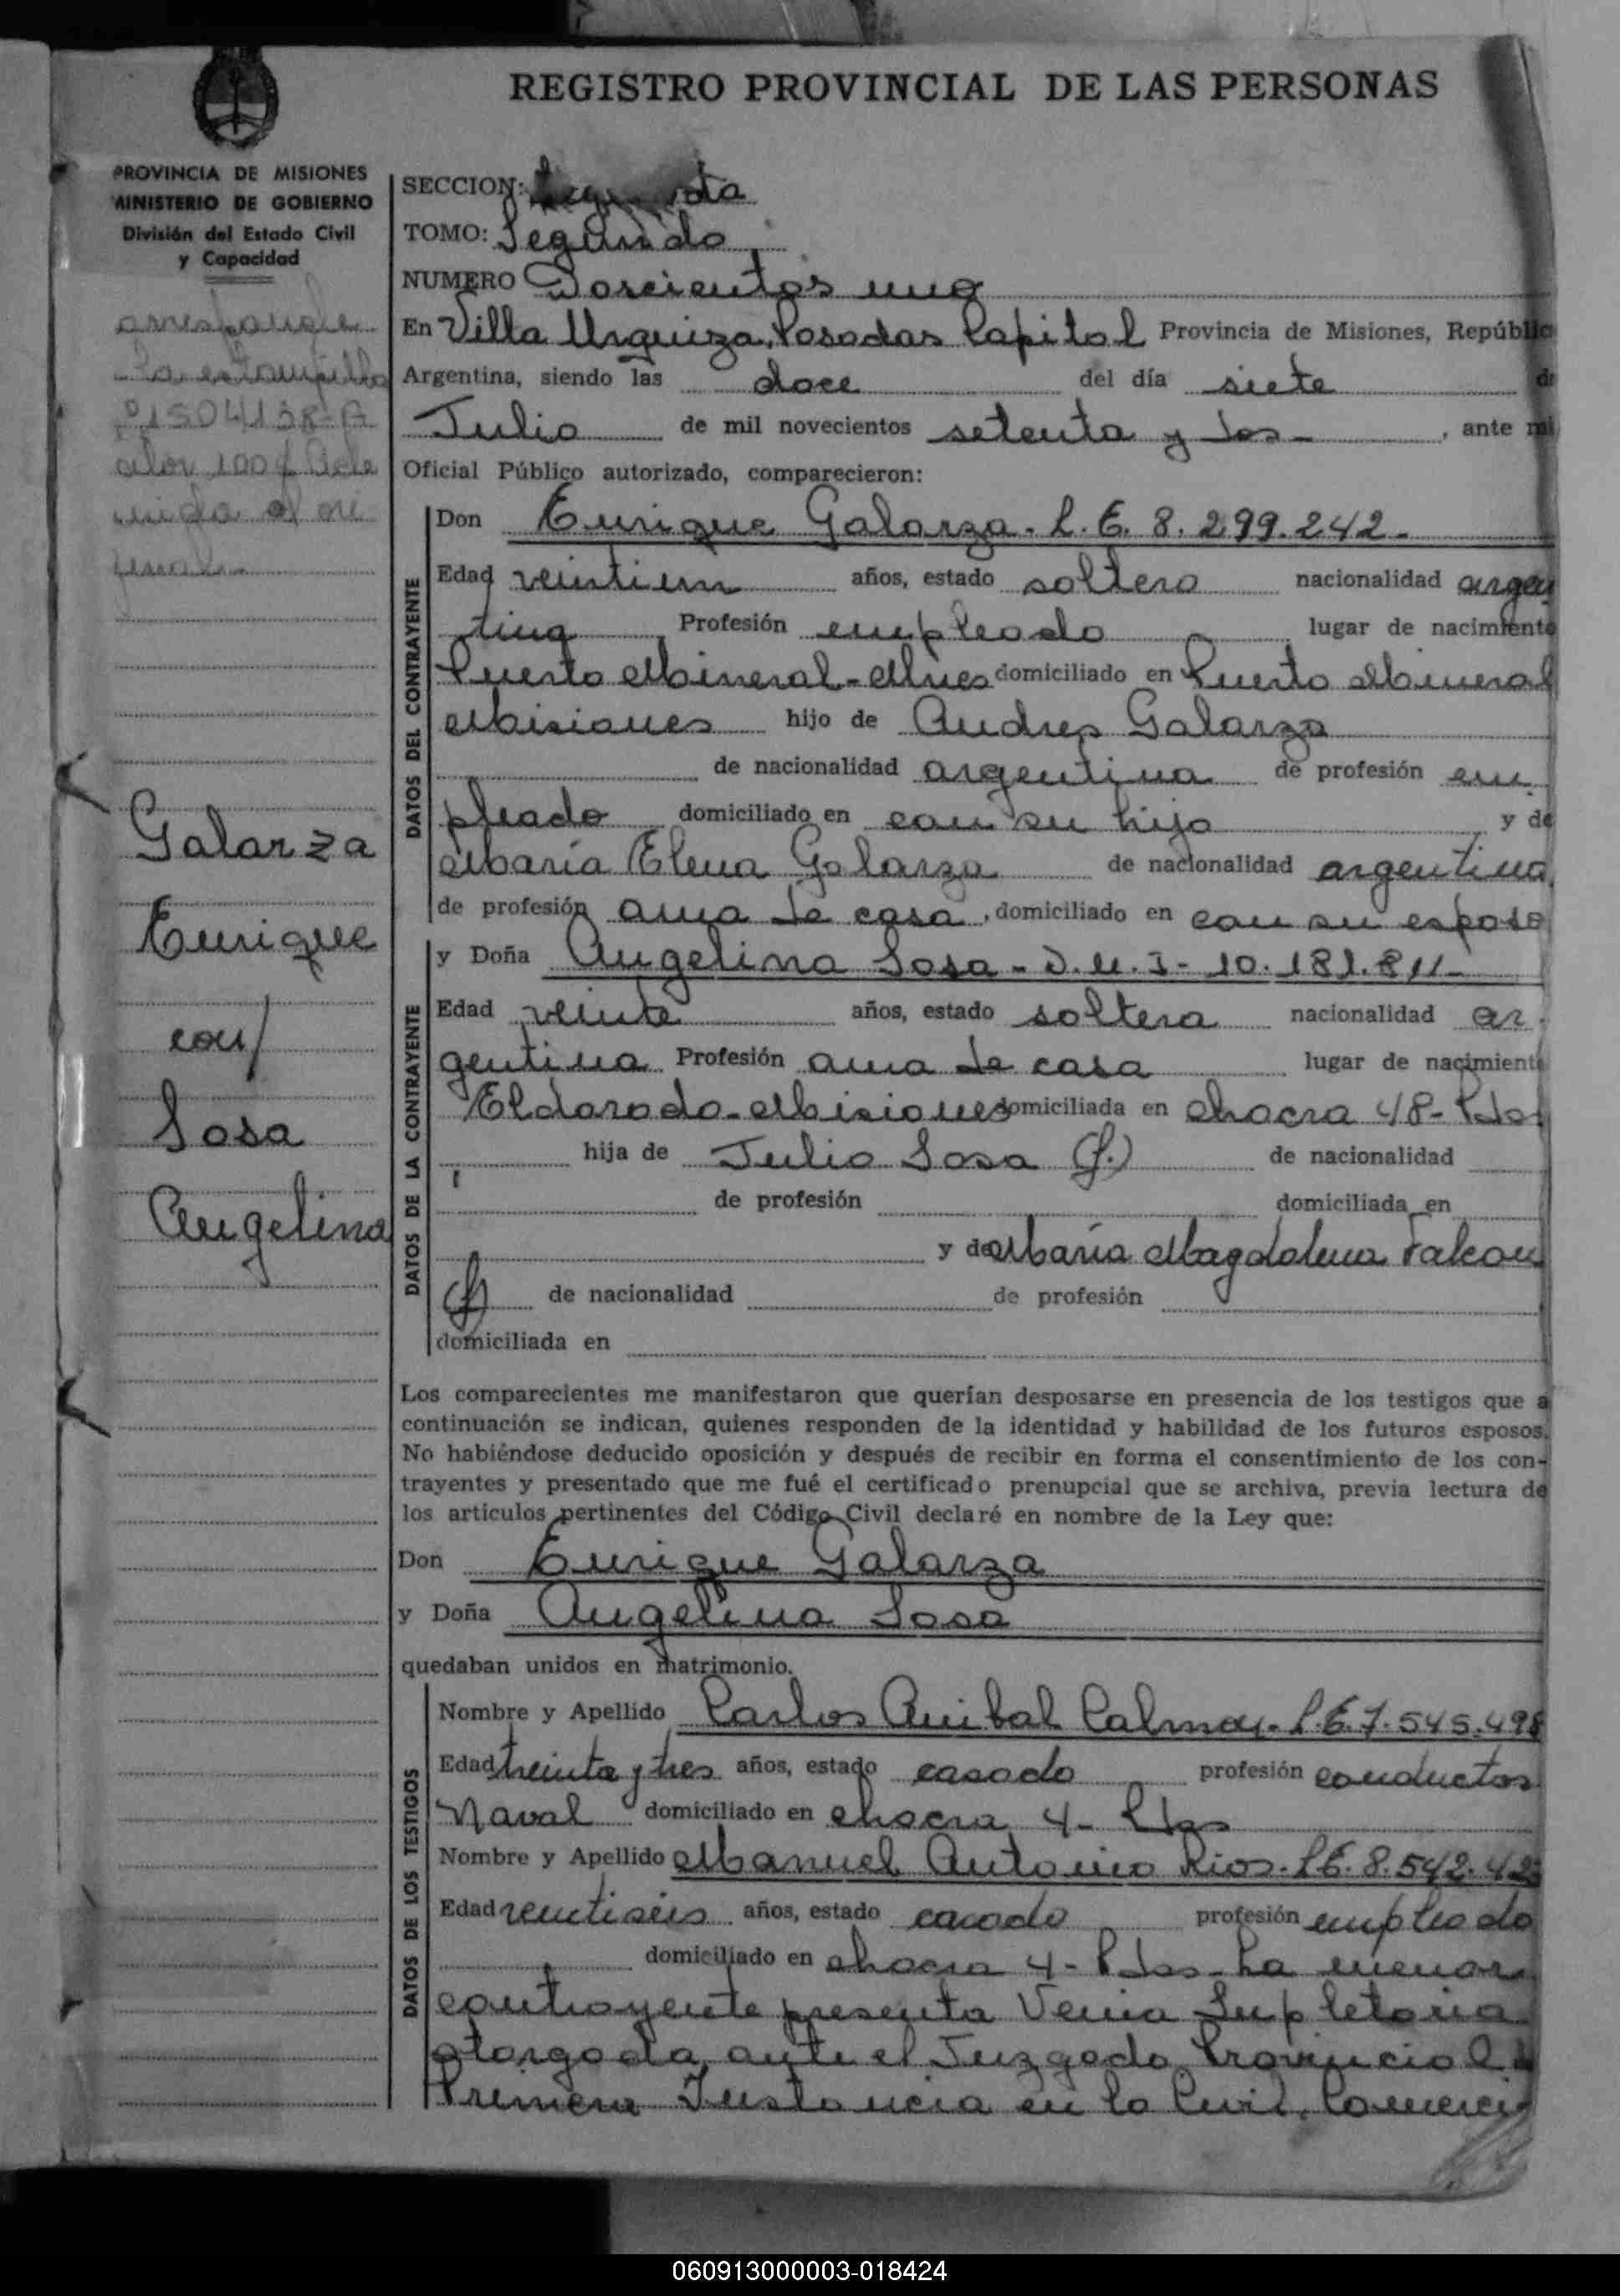 REGISTRO PROVINCIAL DE LAS PERSONAS
PROVINCIA DE MISIONES
MINISTERIO DE GOBIERNO
División del Estado Civil
y Capacidad
la estampilla
Galarza
Enrique
con/
Sosa
Angelina
SECCION:
TOMO: Segundo
NUMERO Doscientos uno
En Villa Urquiza, Posadas Capital Provincia de Misiones, República
Argentina, siendo las doce del día siete de
Julio de mil novecientos setenta y dos - , ante mi
Oficial Público autorizado, comparecieron:
DATOS DEL CONTRAYENTE
Don Enrique Galarza - L.E. 8.299.242 -
Edad veintiun años, estado soltero nacionalidad argen
tina Profesión empleado lugar de nacimiento
Puerto Mineral - Mnes domiciliado en Puerto Mineral
Misiones hijo de Andres Galarza
de nacionalidad argentina de profesión em
pleado domiciliado en con su hijo y de
María Elena Galarza de nacionalidad argentina
de profesión ama de casa , domiciliado en con su esposo
DATOS DE LA CONTRAYENTE
y Doña Angelina Sosa - D.N.I - 10.181.811 -
Edad veinte años, estado soltera nacionalidad ar
gentina Profesión ama de casa lugar de nacimiento
Eldorado - Misiones domiciliada en chacra 48 - Pdas
hija de Julio Sosa (f.) de nacionalidad
de profesión domiciliada en
y de María Magdalena Falcon
(f) de nacionalidad de profesión
domiciliada en
Los comparecientes me manifestaron que querían desposarse en presencia de los testigos que a
continuación se indican, quienes responden de la identidad y habilidad de los futuros esposos.
No habiéndose deducido oposición y después de recibir en forma el consentimiento de los con-
trayentes y presentado que me fué el certificado prenupcial que se archiva, previa lectura de
los artículos pertinentes del Código Civil declaré en nombre de la Ley que:
Don Enrique Galarza
y Doña Angelina Sosa
quedaban unidos en matrimonio.
DATOS DE LOS TESTIGOS
Nombre y Apellido Carlos Anibal - L.E. 7.545.498
Edad treinta y tres años, estado casado profesión conductor
Naval domiciliado en chacra 4 - Pdas
Nombre y Apellido Manuel Antonio Rios - L.E. 8.542.42
Edad veintiseis años, estado casado profesión empleado
domiciliado en chacra 4 - Pdas - La menor
contrayente presenta Venia Supletoria
otorgada ante el Juzgado Provincial
Primera Instancia en lo Civil, Comercial
060913000003-018424